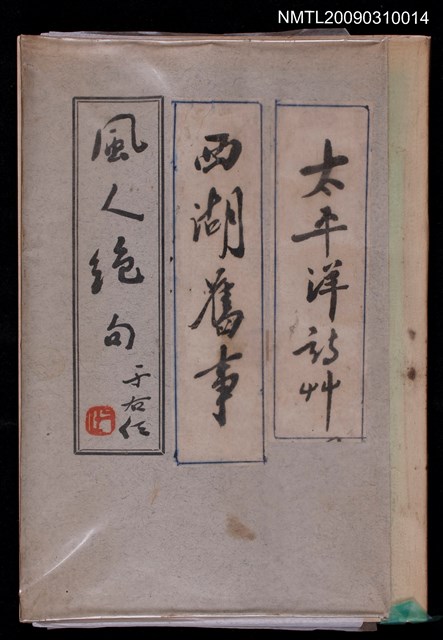 NMTL20090310014
太平洋詩艸
西湖舊事
風人絕句
于右任